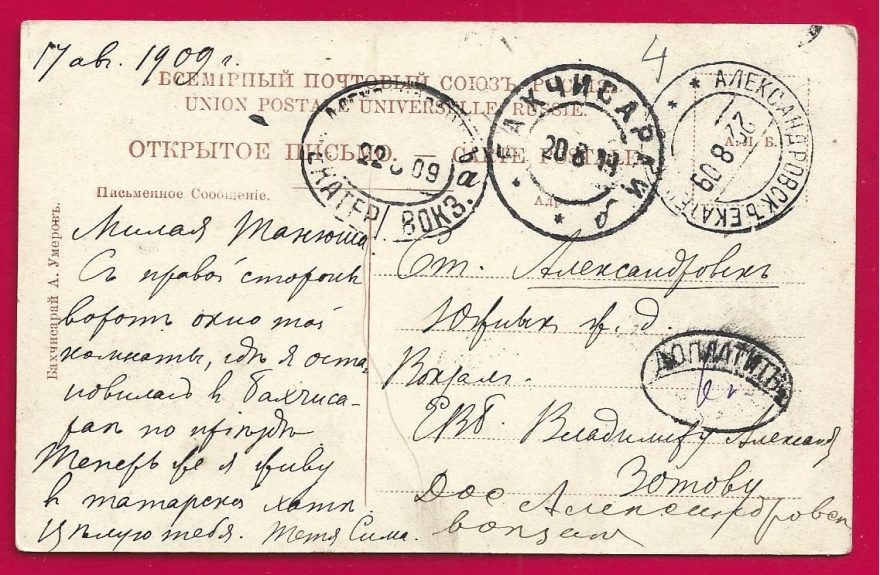 17 авг. 1909 г.
ВСЕМІРНЫЙ ПОЧТОВЫЙ СОЮЗЪ. РОССІЯ.
UNION POSTALE UNIVERSELLE. RUSSIE.
ОТКРЫТОЕ ПИСЬМО. — CARTE POSTALE.
4
ЕКАТЕР. ВОКЗ.
22 8 09
БАХЧИСАРАЙ
20 8 19
АЛЕКСАНДРОВСКЪ ЕКАТЕР
22 8 09
Письменное Сообщеніе.
Бахчисарай А. Умеровъ.
Милая Танюша
Съ правой стороны
воротъ окно той
комнаты, гдѣ я оста
новилась въ Бахчиса-
раѣ по пріѣздѣ
Теперь же я живу
въ татарской хатѣ
Цѣлую тебя. Тетя Сима.
Ст. Александровскъ
Южных ж. д.
Вокзалъ.
ЕВБ. Владиміру Александ
Зотову
ДОПЛАТИТЬ
Александровск
вокзал